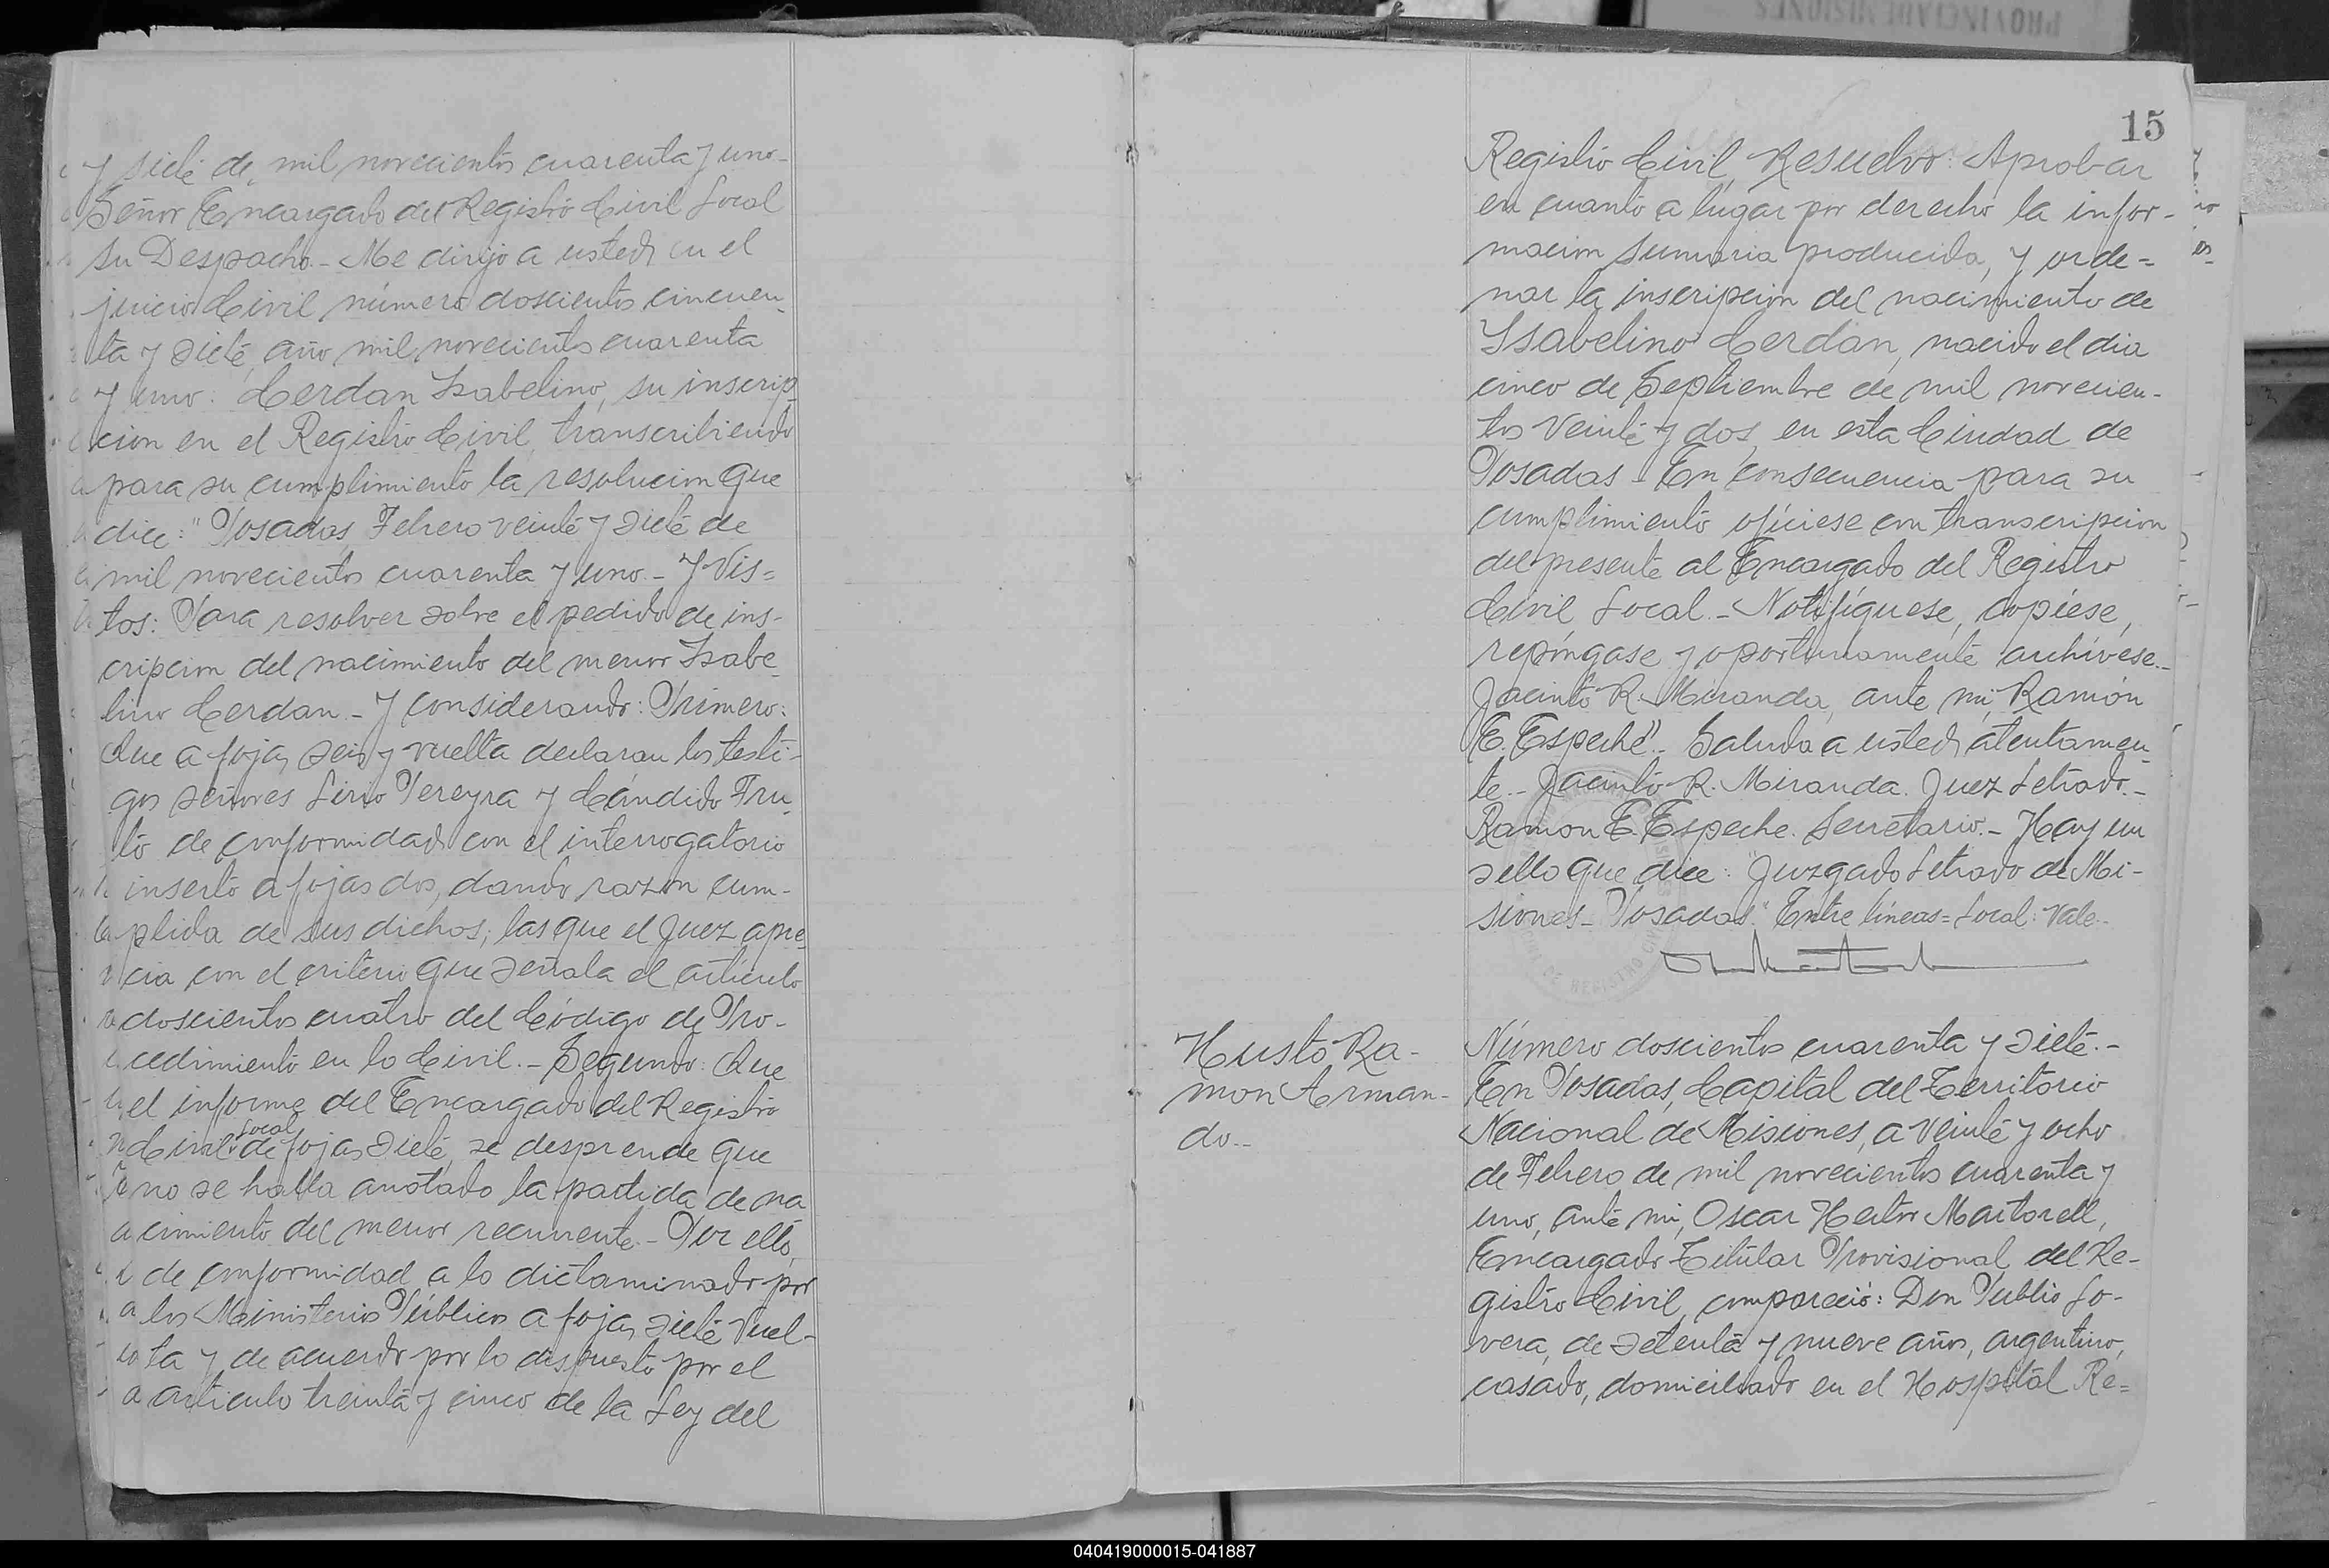 y siete de mil novecientos cuarenta y uno-
Señor Encargado del Registro Civil Local
Su Despacho.- Me dirijo a usted en el
juicio Civil número doscientos cincuen-
ta y siete, año mil novecientos cuarenta
y uno: Cerdan Isabelino, su inscrip-
cion en el Registro Civil, transcribiendo
para su cumplimiento la resolucion que
dice: "Posadas, Febrero veinte y siete de
mil novecientos cuarenta y uno.- Y Vis=
tos: Para resolver sobre el pedido de ins-
cripcion del nacimiento del menor Isabe-
lino Cerdan.- Y considerando: Primero:
Que a fojas seis y vuelta declaran los testi-
gos señores Lirio Pereyra y Cándido Fru-
to de conformidad con el interrogatorio
inserto a fojas dos, dando razon cum-
plida de sus dichos; las que el Juez apre-
cia con el criterio que señala el artículo
doscientos cuatro del Código de Pro-
cedimiento en lo Civil.- Segundo: Que
el informe del Encargado del Registro
Local
Civil de fojas siete, se desprende que
no se halla anotado la partida de na
cimiento del menor recurrente.- Por ello,
de conformidad a lo dictaminado por
los Ministerios Públicos a fojas siete vuel-
ta y de acuerdo por lo dispuesto por el
articulo treinta y cinco de la Ley del
15
Registro Civil, Resuelvo: Aprobar
en cuanto a lugar por derecho la infor-
macion sumaria producida, y orde=
nar la inscripcion del nacimiento de
Isabelino Cerdan, nacido el dia
cinco de Septiembre de mil novecien-
tos veinte y dos, en esta Ciudad de
Posadas.- En consecuencia para su
cumplimiento ofíciese con transcripcion
del presente al Encargado del Registro
Civil Local.- Notifíquese, cópiese,
repóngase y oportunamente archívese.-
Jacinto R. Miranda, ante mi, Ramón
E. Espeche".- Saluda a usted atentamen-
te.- Jacinto R. Miranda. Juez Letrado.-
Ramon E. Espeche. Secretario.- Hay un
sello que dice: "Juzgado Letrado de Mi-
siones- Posadas". Entre líneas= Local: Vale.-
Husto Ra-
mon Arman-
do.-
Número doscientos cuarenta y siete.-
En Posadas, Capital del Territorio
Nacional de Misiones, a veinte y ocho
de Febrero de mil novecientos cuarenta y
uno, ante mi, Oscar Hector Martorell,
Encargado Titular Provisional del Re-
gistro Civil, compareció: Don Publio Lo-
vera, de setenta y nueve años, argentino,
casado, domiciliado en el Hospital Re=
040419000015-041887